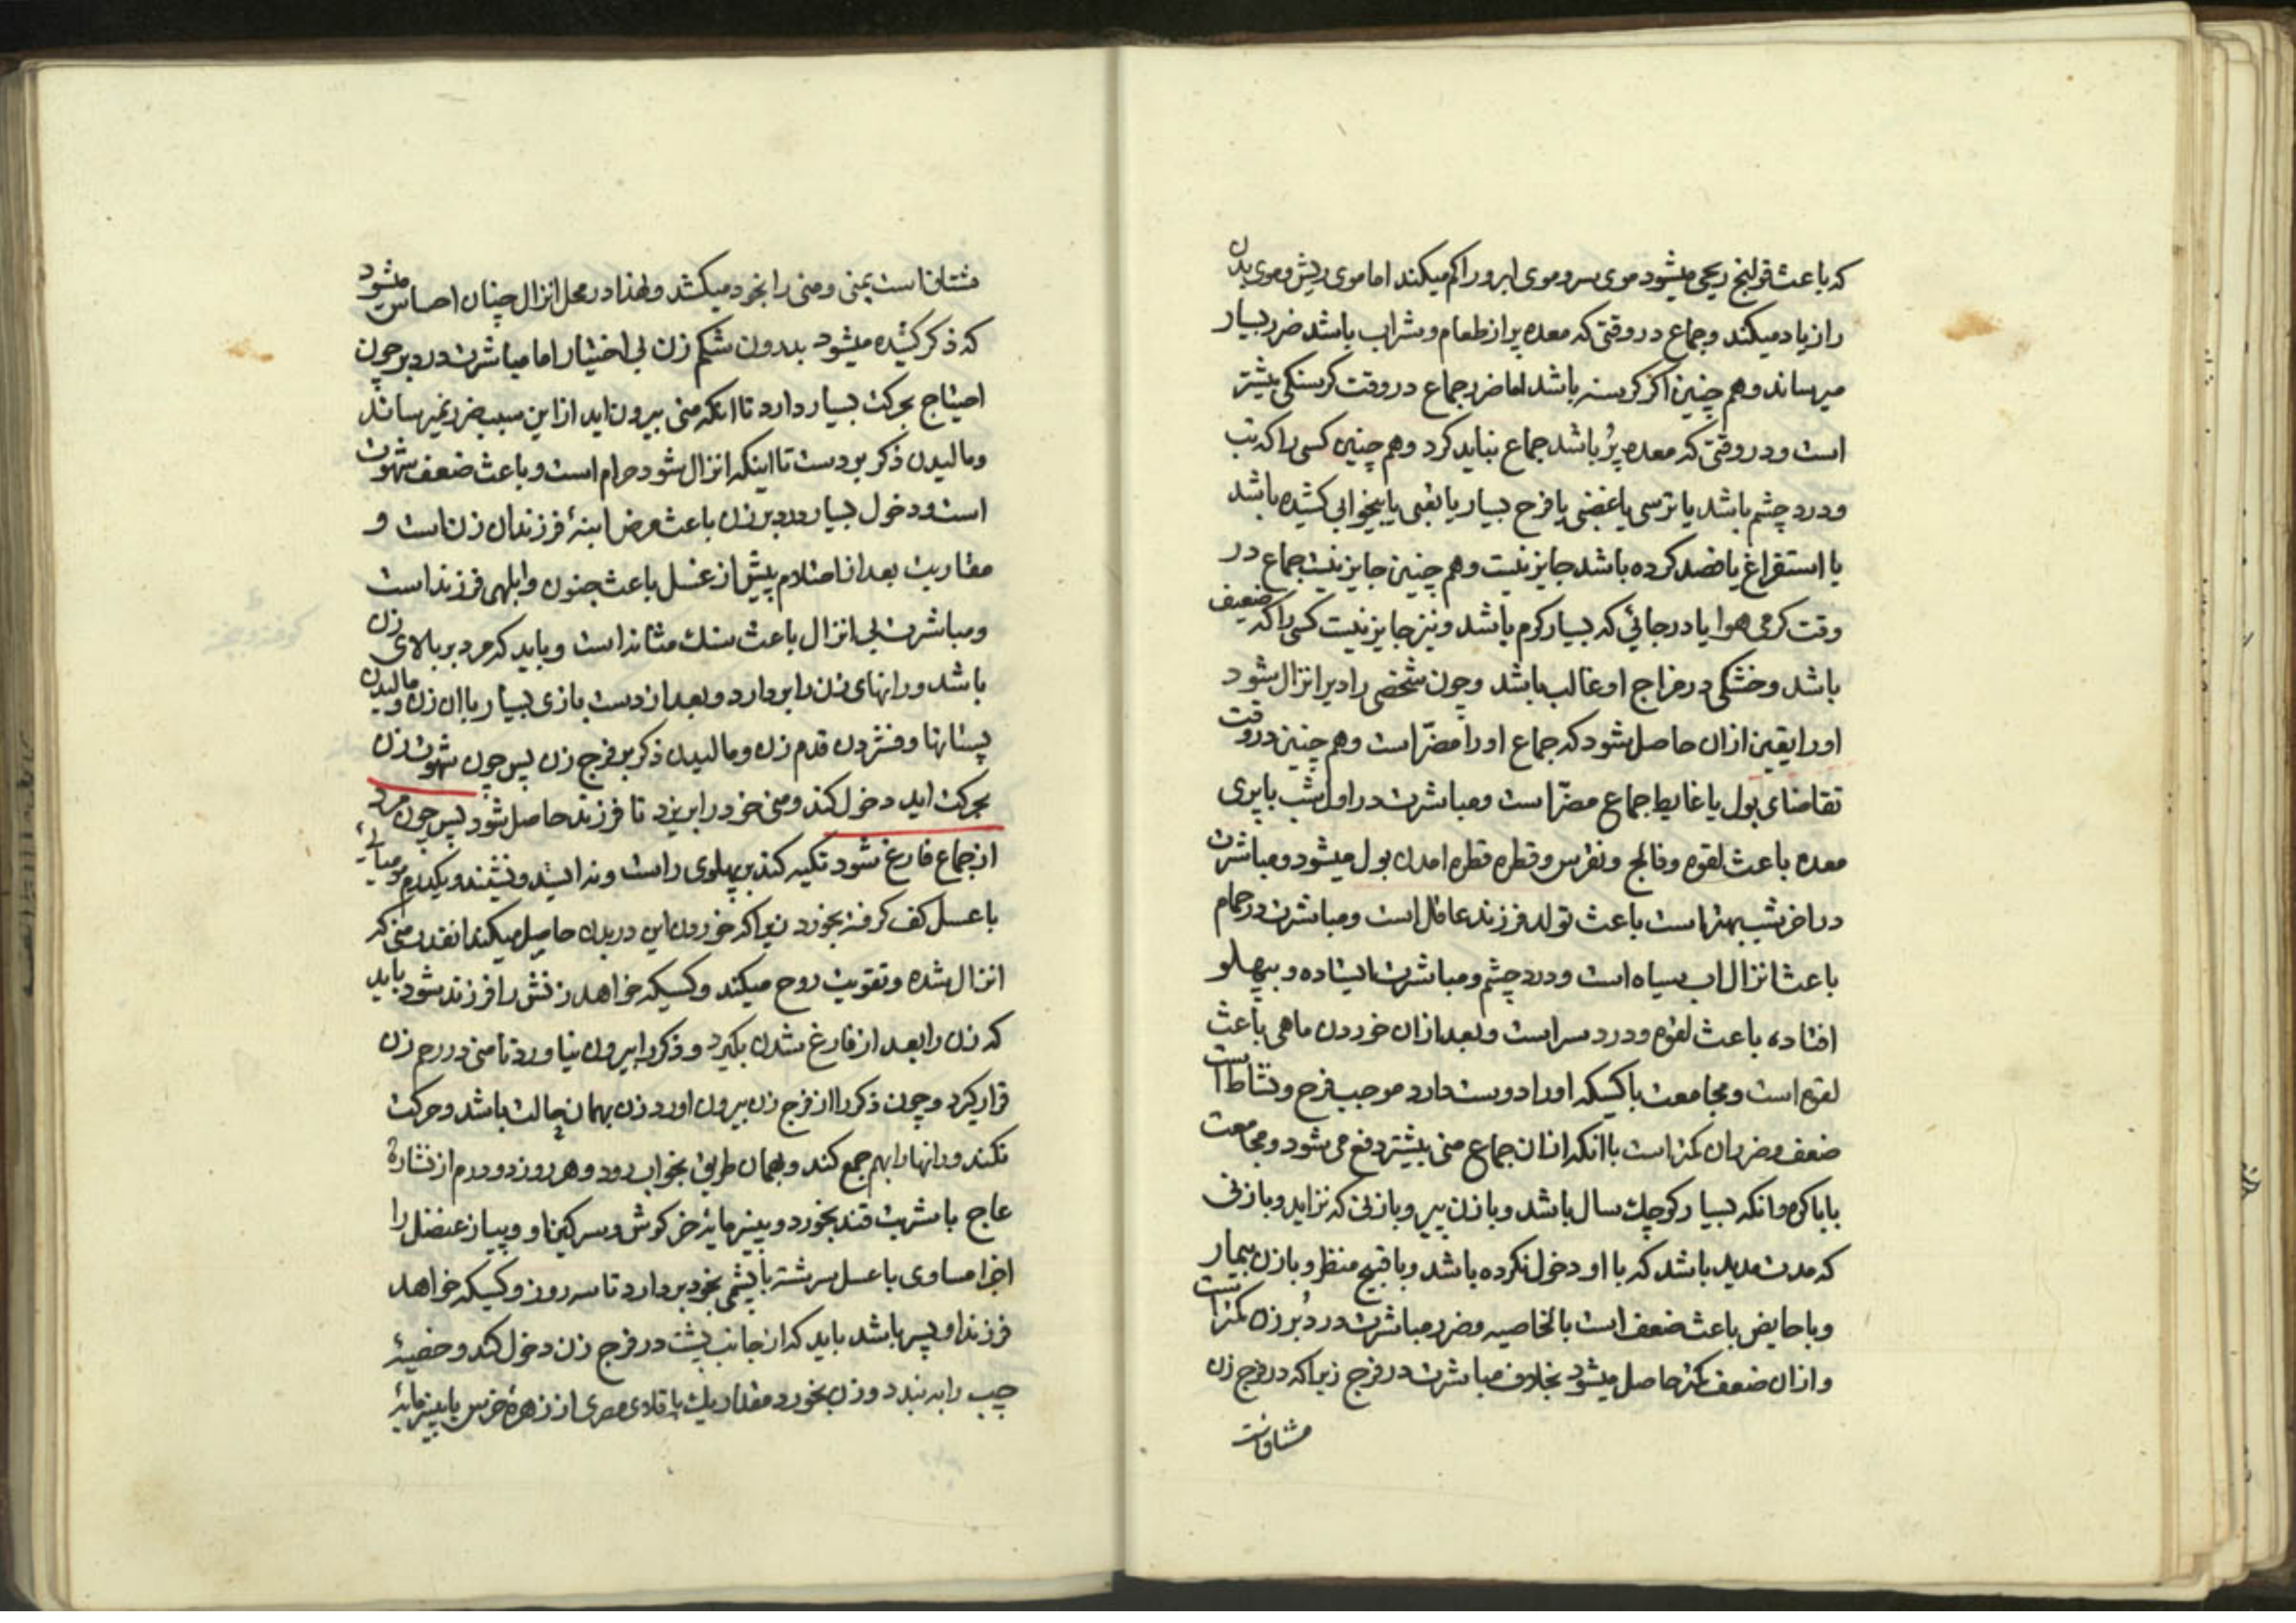 که باعث قولنج ریحی میشود موی سر و موی ابرو را کم میکند اما موی ریش و موی بدن
را زیاد میکند و جماع در وقتی که معده پر از طعام و شراب باشد ضرر بسیار
میرساند و هم چنین اکر کرسنه باشد اما ضرر جماع در وقت کرسنکی بیشتر
است و در وقتی که معده پُر باشد جماع نباید کرد و هم چنین کسی را که تب
و درد چشم باشد یا ترسی یا غضبی یا فرح بسیار یا تعبی یا بیخوابی کشیده باشد
یا استفراغ یا فصد کرده باشد جایز نیست و هم چنین جایز نیست جماع در
وقت کرمی هوا یا در جائی که بسیار کرم باشد و نیز جایز نیست کسی را که ضعیف
باشد و خشکی در مزاج او غالب باشد و چون شخصی را دیر انزال شود
او را یقین ازان حاصل شود که جماع او را مضرّ است و هم چنین در وقت
تقاضای بول یا غایط جماع مضرّ است و مباشرت در اول شب با پری
معده باعث لقوه و فالج و نقرس و قطره قطره امدن بول میشود و مباشرت
در اخر شب بهتر است باعث تولد فرزند عاقل است و مباشرت در حمام
باعث انزال اب سیاه است و درد چشم و مباشرت ایستاده و بپهلو
افتاده باعث لقوه و درد سر است و بعد ازان خوردن ماهی باعث
لقوه است و مجامعت با کسیکه او را دوست دارد موجب فرح و نشاط است
ضعف و ضرر ان کمتر است با انکه از ان جماع منی بیشتر دفع می شود و مجامعت
با باکره و انکه بسیار کوچک سال باشد و با زن پیر و با زنی که نزاید و با زنی
که مدت مدید باشد که با او دخول نکرده باشد و با قبیح منظر و با زن بیمار
و با حایض باعث ضعف است بالخاصیه و ضرر مباشرت در دُبر زن کمتر است
و ازان ضعف کمتر حاصل میشود بخلاف مباشرت در فرج زیرا که در فرج زن
مشتاقست
مشتاق است بمنی و منی را بخود میکشد و لهذا در محل انزال چنان احساس میشود
که ذکر کشیده میشود بدرون شکم زن بی اختیار اما مباشرت در دبر چون
احتیاج بحرکت بسیار دارد تا انکه منی بیرون اید ازاین سبب ضرر نمیرساند
و مالیدن ذکر بر دست تا اینکه انزال شود حرام است و باعث ضعف شهوت
است و دخول بسیار در دبر زن باعث مرض ابنۀ فرزندان زن است و
مقاربت بعد از احتلام پیش از غسل باعث جنون و ابلهی فرزند است
و مباشرت بی انزال باعث سنك مثانه است و باید که مرد بر بالای زن
باشد و رانهای زن را بردارد و بعد از دست بازی بسیار با ان زن و مالیدن
پستانها و فشردن قدم زن و مالیدن ذکر بر فرج زن پس چون شهوت زن
بحرکت اید دخول کند و منی خود را بریزد تا فرزند حاصل شود پس چون مرد
از جماع فارغ شود تکیه کند بر پهلوی راست و نه ایستد و نه نشیند و یکدرم مومیائی
با عسل کف کرفته بخورد زیرا که خوردن این در بدن حاصل میکند انقدر منی که
انزال شده و تقویت روح میکند و کسیکه خواهد زنش را فرزند شود باید
که زن را بعد از فارغ شدن بکیرد و ذکر را بیرون نیاورد تا منی در رحم زن
قرار کیرد و چون ذکر را از فرج زن بیرون اورد زن بهمان حالت باشد و حرکت
نکند و رانها را بهم جمع کند و بهمان طریق بخواب رود و هر روز دو درم از نشارۀ
عاج با شربت قند بخورد و پنیر مایه خرکوش و سرکین کاو و پیاز عنصل را
اجزا مساوی با عسل سرشته با پشمی بخود بردارد تا سه روز و کسیکه خواهد
فرزند او پسر باشد باید که از جانب پشت در فرج زن دخول کند و خصیۀ
چپ را به بندد و زن بخورد مقدار یك باقلای مصری از زهرۀ خرس یا پنیر مایۀ